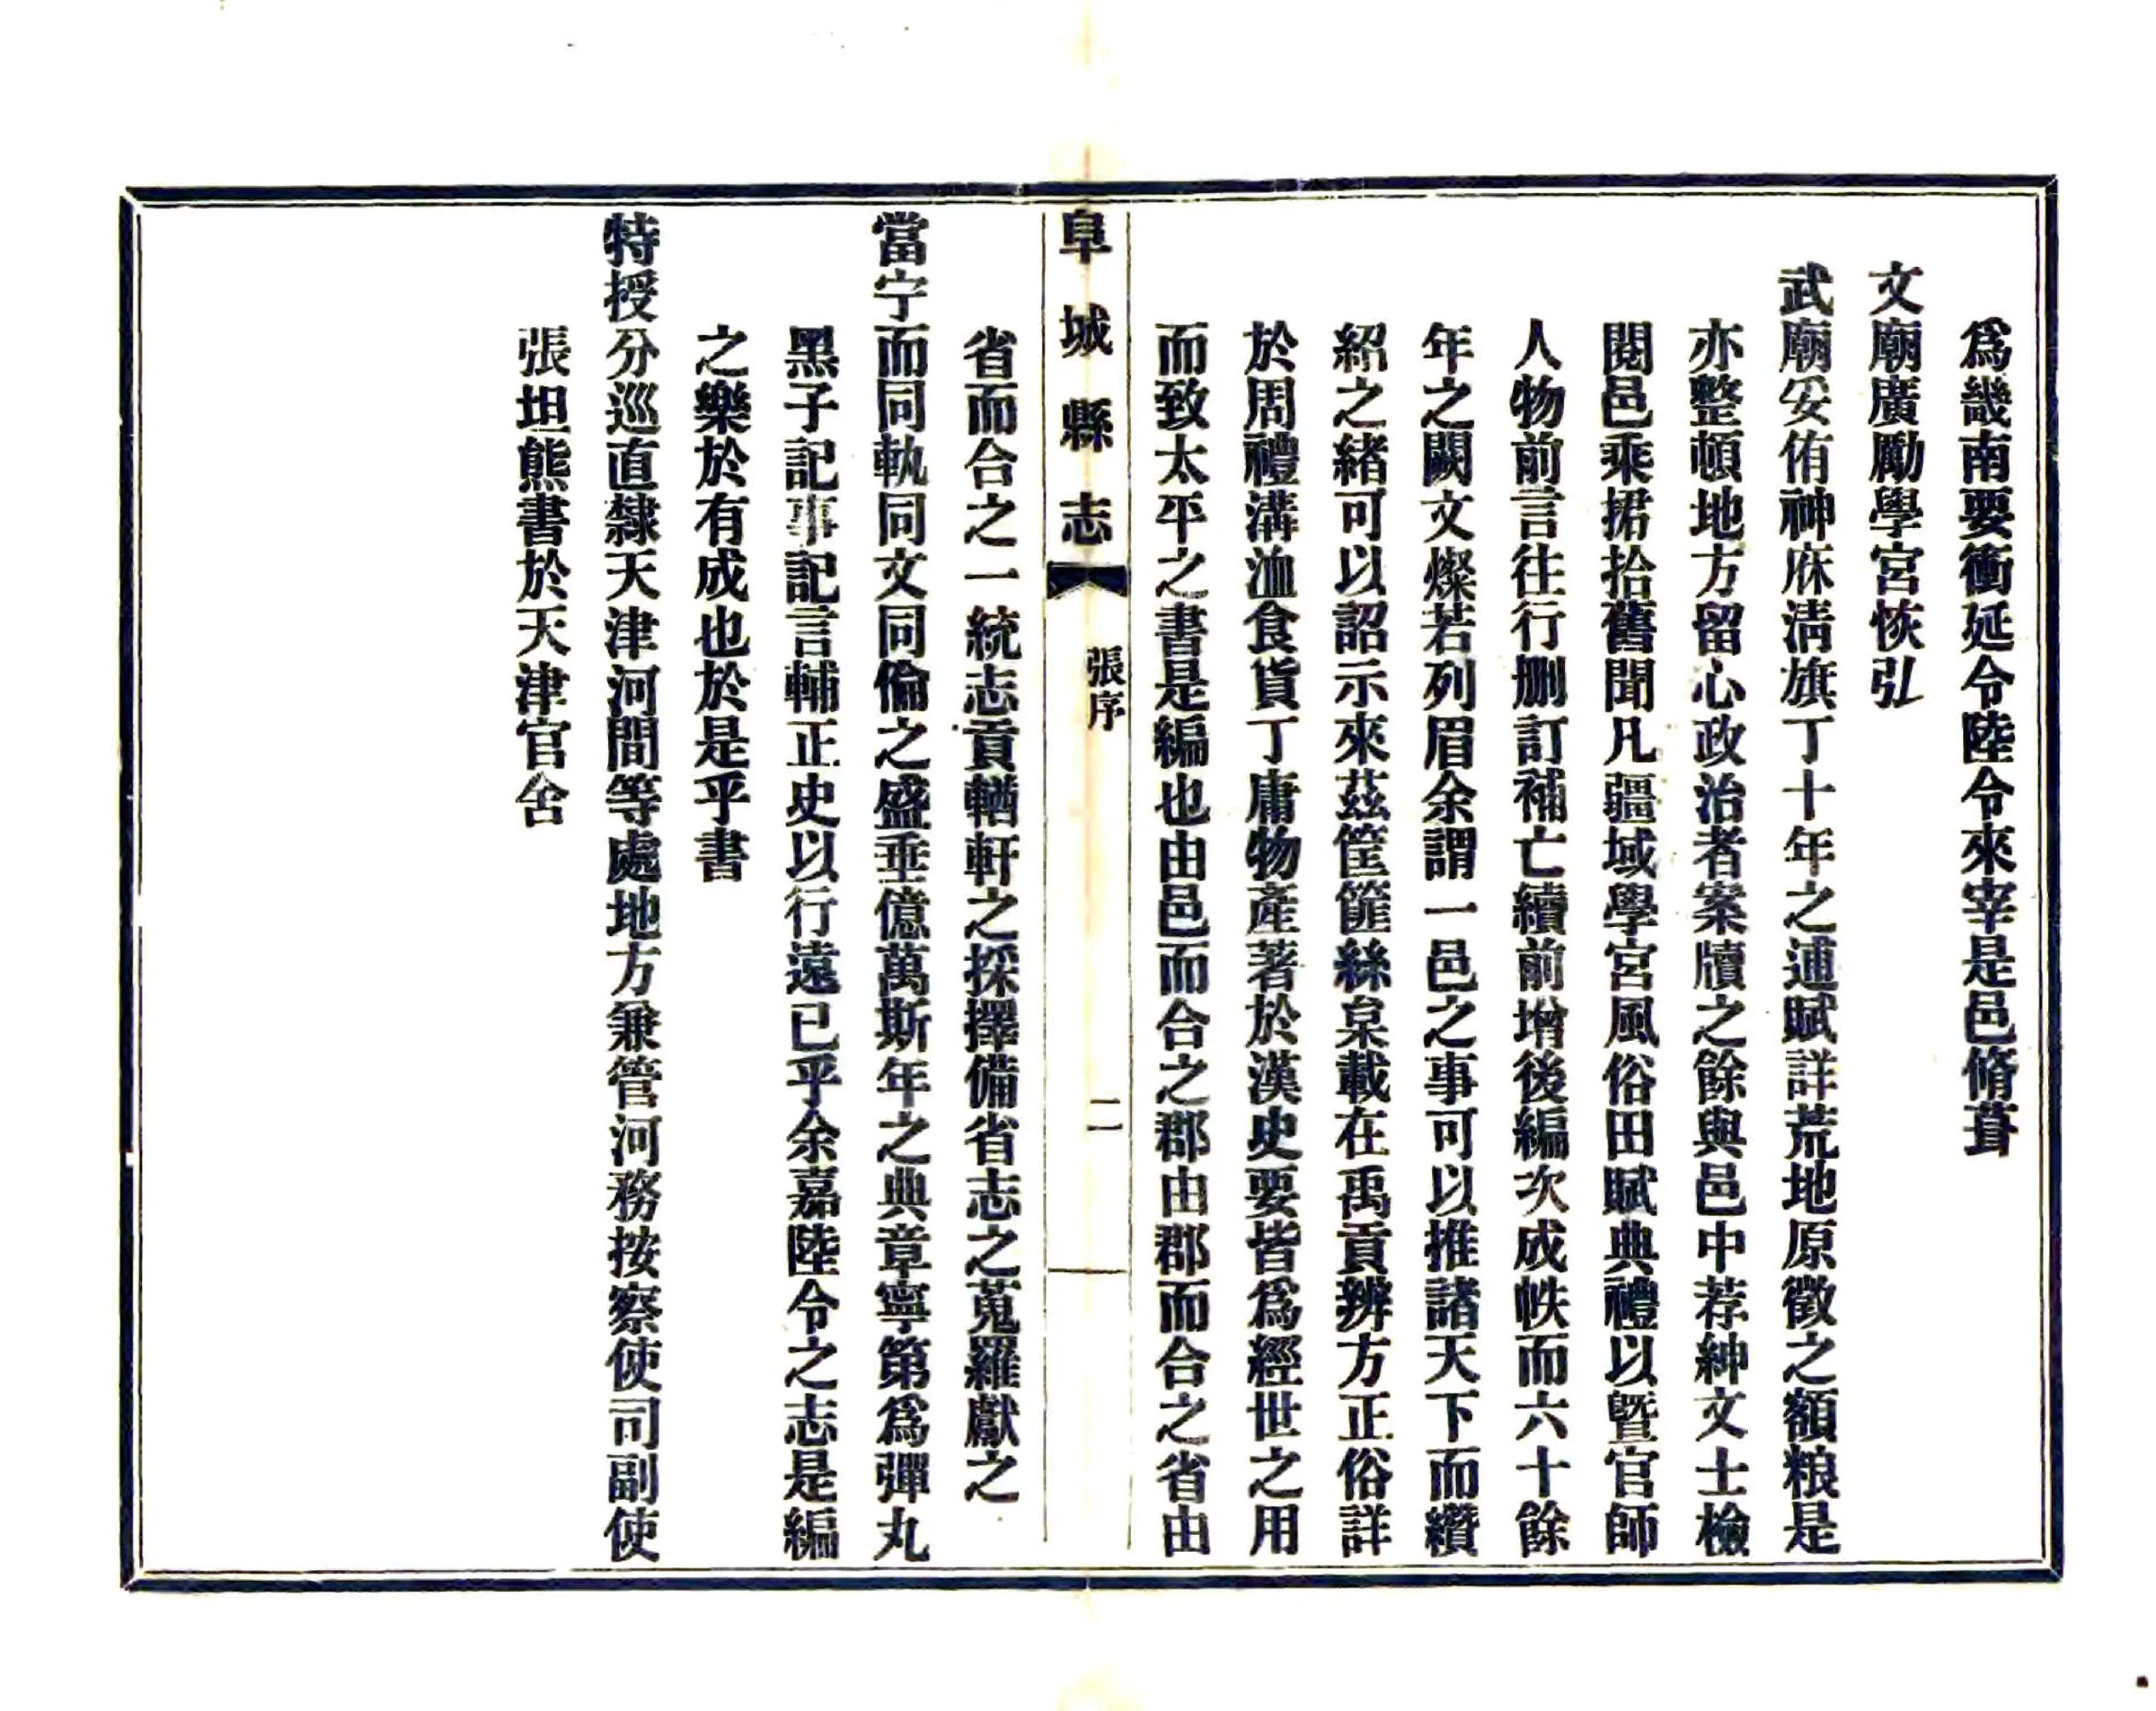 爲畿南要衝延令陸令來宰是邑脩葺
文廟廣勵學宮恢弘
武廟妥侑神庥淸旗丁十年之逋賦詳荒地原徵之額粮是
亦整頓地方留心政治者案牘之餘與邑中荐紳文士檢
閱邑乘捃拾舊聞凡疆域學宮風俗田賦典禮以曁官師
人物前言往行删訂補亡續前增後編次成帙而六十餘
年之闕文燦若列眉余謂一邑之事可以推諸天下而纘
紹之緒可以詔示來茲筐篚絲枲載在禹貢辨方正俗詳
於周禮溝洫食貨丁庸物產著於漢史要皆爲經世之用
而致太平之書是編也由邑而合之郡由郡而合之省由
阜城縣志
張序
二
省而合之一統志貢輶軒之採擇備省志之蒐羅獻之
當宁而同軌同文同倫之盛垂億萬斯年之典章寧第爲彈丸
黑子記事記言輔正史以行遠已乎余嘉陸令之志是編
之樂於有成也於是乎書
特授分巡直隸天津河間等處地方兼管河務按察使司副使
張坦熊書於天津官舍